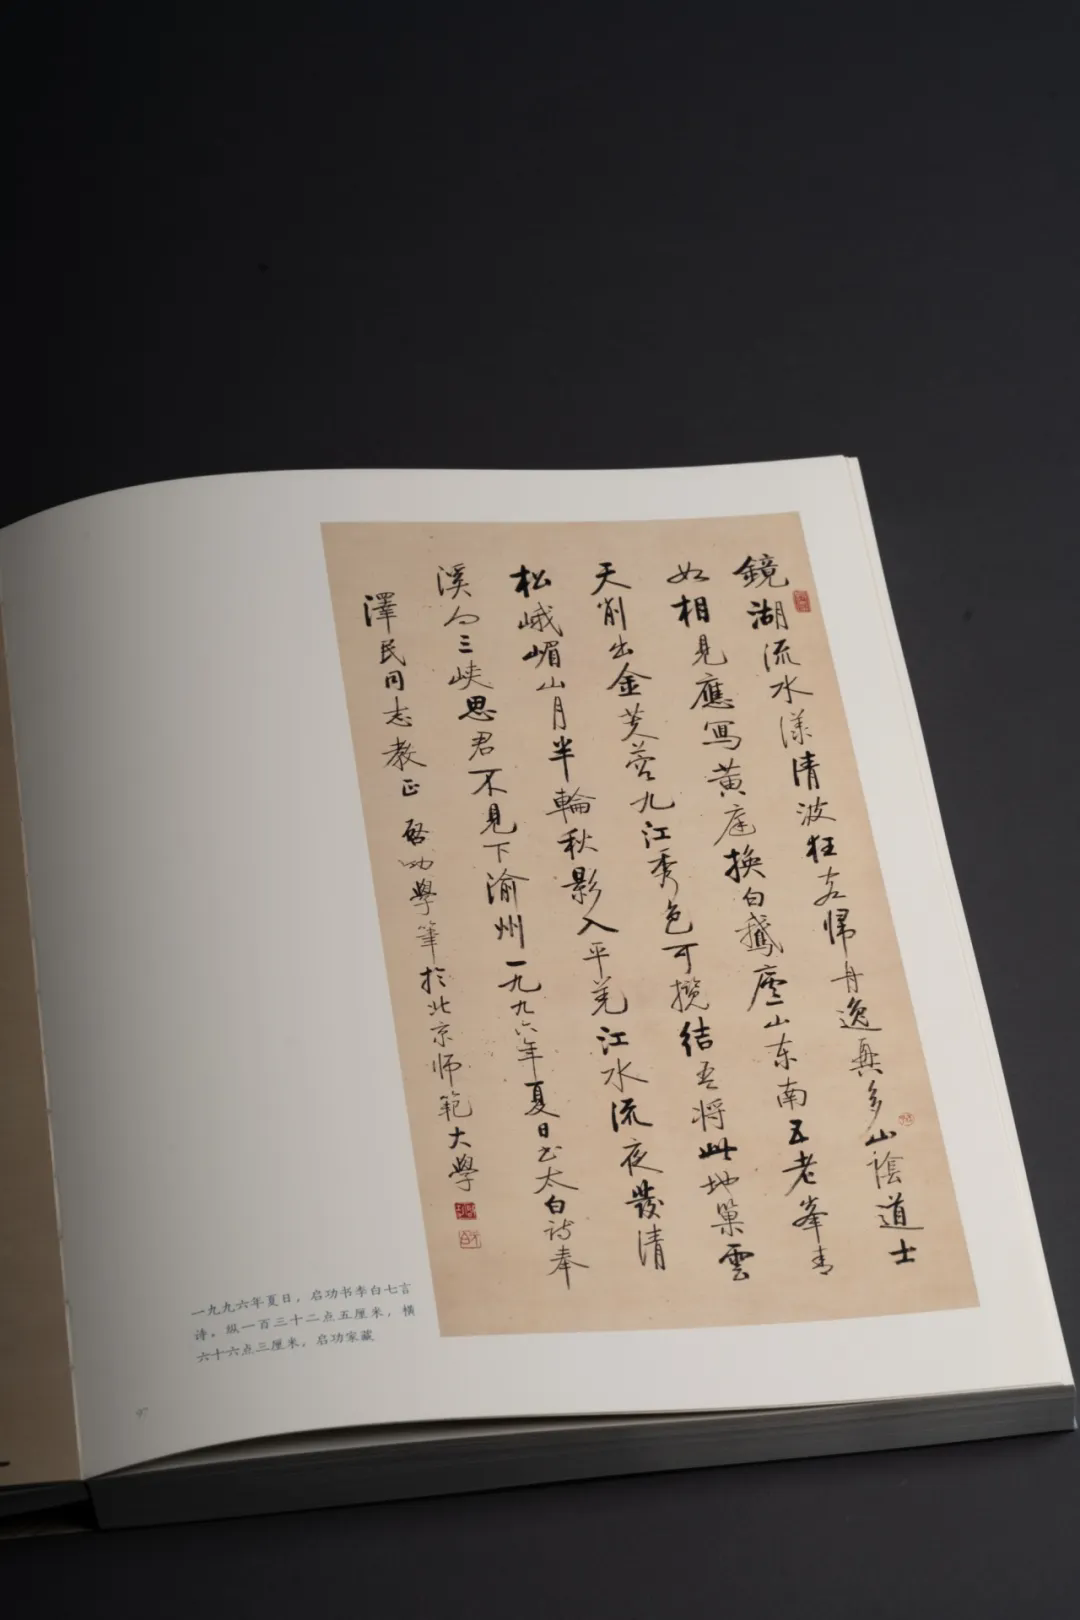 鏡湖流水漾清波狂客帰舟逸興多山陰道士
如相見應寫黄庭換白鵝廬山东南五老峯青
天削出金芙蓉九江秀色可攬結吾將此地巢雲
松峨嵋山月半輪秋影入平羌江水流夜發清
溪向三峽思君不見下渝州一九九六年夏日书太白诗奉
澤民同志教正 啓功學筆於北京师範大學
一九九六年夏日，启功书李白七言
诗。纵一百三十二点五厘米，横
六十六点三厘米，启功家藏
97